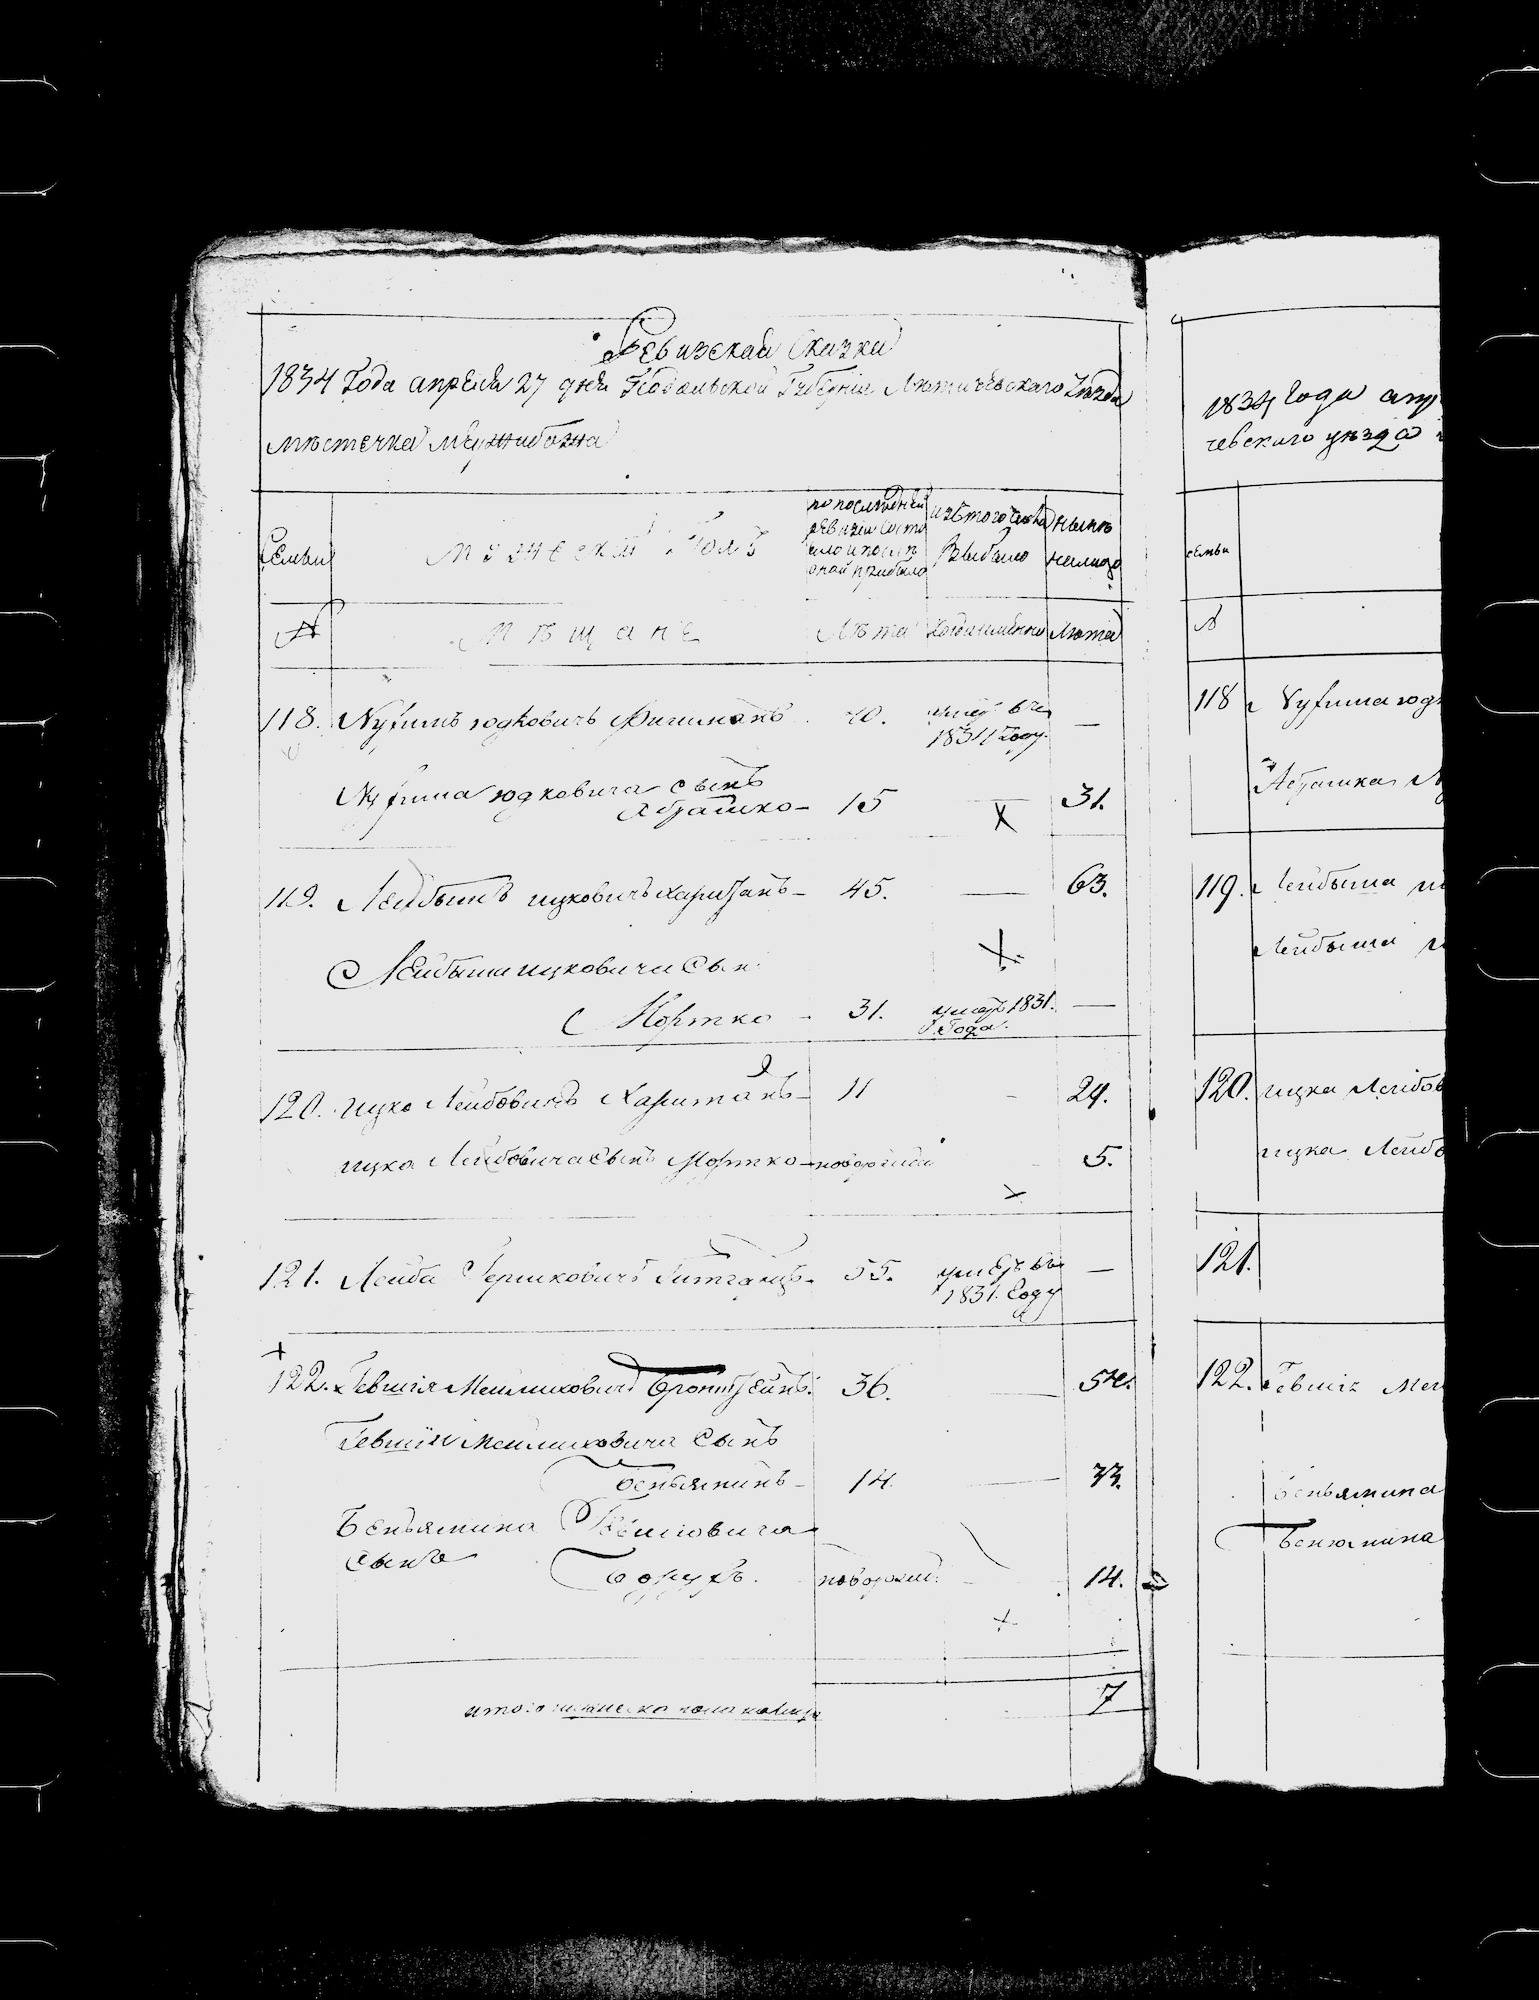 Ревизская Сказка
1834 Года апреля 27 дня Подольской Губернии Летичевского Уезда
местечка Меджибожа
Семьи
Мужеский Полъ
по последней
ревизии состо
яло и после
оной прибыло
изЪ того числа
Выбыло
ныне
налицо
№
Мѣщане
Лѣта
Когда именно
Лѣта
118. Нухимъ Юдковичъ Фишманъ 40. умеръ въ
1831 Году. —
Нухима Юдковича сынъ
Абрашко — 15 — 31.
X
119. Лейбышъ Ицковичъ Хаританъ — 45. — 63.
Лейбыша Ицковича Сын X.
Мортко - 31. умеръ 1831. —
Года.
120. Ицко Лейбовичъ Хаританъ — 11 - 29.
Ицка Лейбовича Сынъ Мортко — новорожден - 5.
X
121. Лейба Гершковичъ — 55. умеръ въ —
1831. Году
+
122. Гевшия Мошковичъ Бронштейнъ. 36. — 54.
Гевшии Мошковича Сынъ
Беньяминъ — 14. — 33.
Беньямина Гевшиовича
Сынъ Борухъ. новорожд. - 14.
+
итого мужеска пола налицо 7
1834 Года апр
чевского уезда
семьи
№
118 Нухима Юд
Абрашка Н
119. Лейбыша И
Лейбыша И
120. Ицка Лейбов
Ицка Лейбо
121.
122. Гевшия Мо
Беньямина
Бенюмина